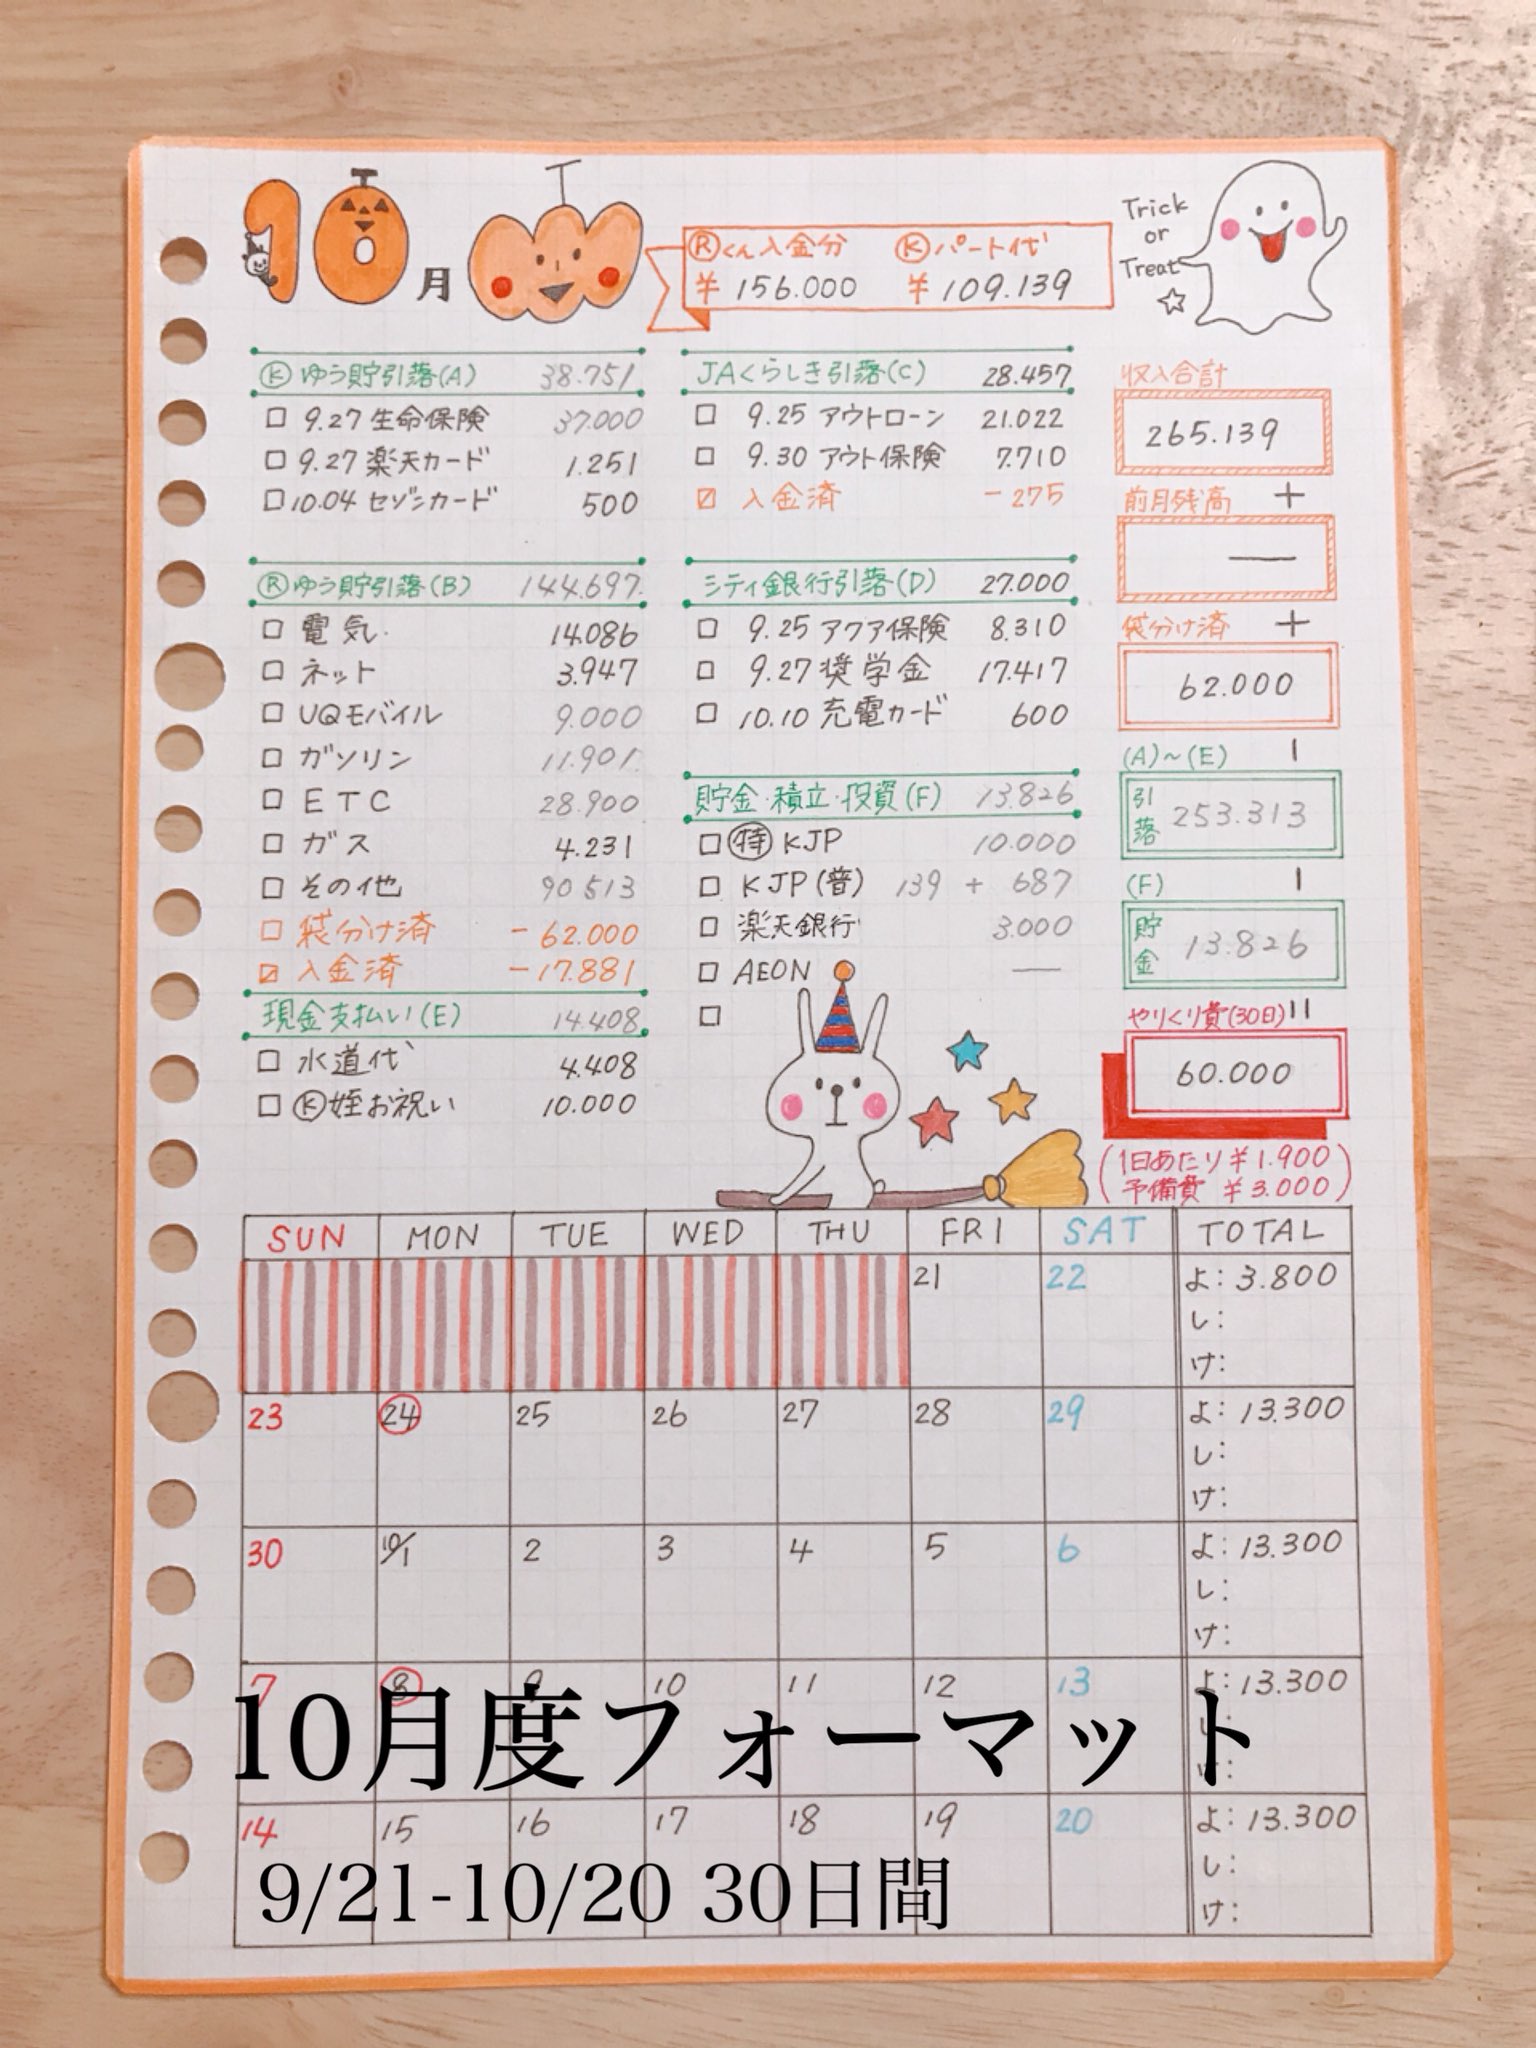 10月
Ⓡくん入金分 Ⓚパート代
¥ 156.000 ¥ 109.139
Trick
or
Treat
Ⓚゆう貯引落(A) 38.751
□ 9.27 生命保険 37.000
□ 9.27 楽天カード 1.251
□ 10.04 セゾンカード 500
Ⓡゆう貯引落(B) 144.697
□ 電気 14.086
□ ネット 3.947
□ UQモバイル 9.000
□ ガソリン 11.901
□ ETC 28.900
□ ガス 4.231
□ その他 90513
□ 袋分け済 -62.000
☑ 入金済 -17.881
現金支払い(E) 14.408
□ 水道代 4.408
□ Ⓚ姪お祝い 10.000
JAくらしき引落(C) 28.457
□ 9.25 アウトローン 21.022
□ 9.30 アウト保険 7.710
☑ 入金済 -275
シティ銀行引落(D) 27.000
□ 9.25 アクア保険 8.310
□ 9.27 奨学金 17.417
□ 10.10 充電カード 600
貯金・積立・投資(F) 13.826
□ ㊕ KJP 10.000
□ KJP(普) 139 + 687
□ 楽天銀行 3.000
□ AEON —
□
収入合計
265.139
前月残高 +
—
袋分け済 +
62.000
(A)~(E) |
引落 253.313
(F) |
貯金 13.826
やりくり費(30日) ||
60.000
(1日あたり ¥1.900
予備費 ¥3.000)
SUN MON TUE WED THU FRI SAT TOTAL
21 22 よ: 3.800
し:
け:
23 24 25 26 27 28 29 よ: 13.300
し:
け:
30 10/1 2 3 4 5 6 よ: 13.300
し:
け:
7 8 9 10 11 12 13 よ: 13.300
10月度フォーマット
14 15 16 17 18 19 20 よ: 13.300
し:
け:
9/21-10/20 30日間